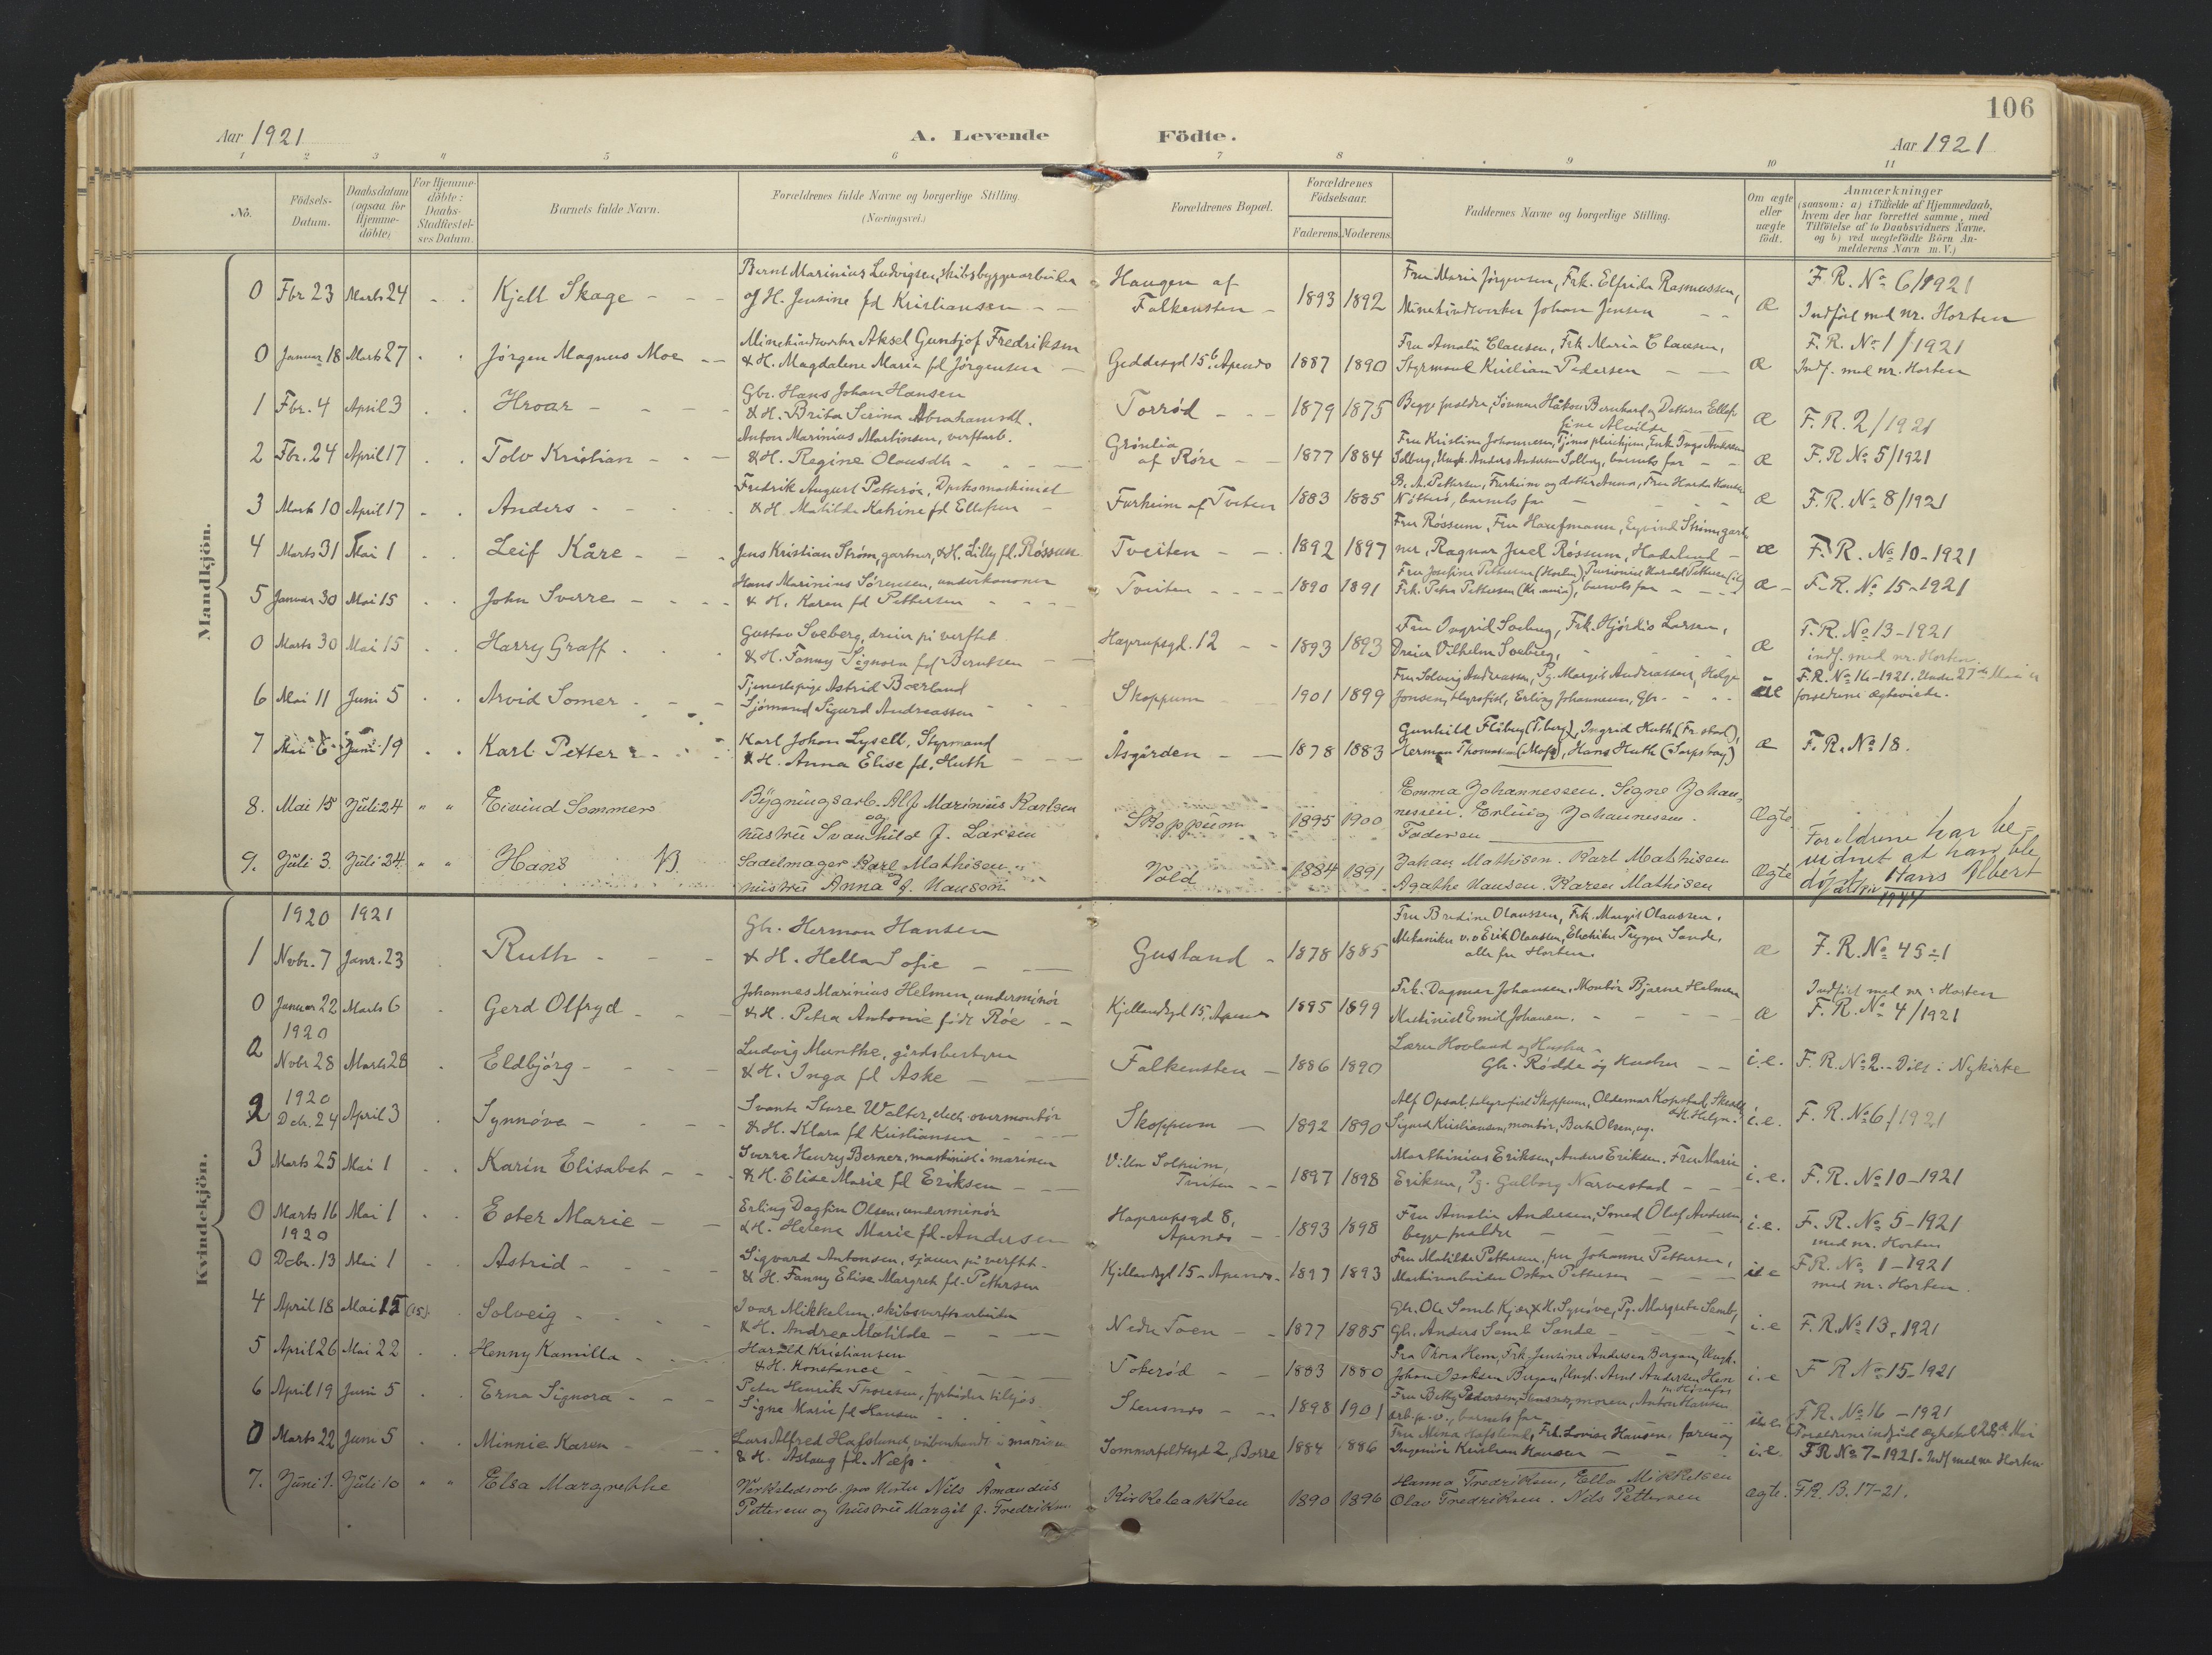 106
Aar 1921
A. Levende Födte.
Aar 1921
1 2 3 4 5 6 7 8 9 10 11
No.
Födsels-
Datum.
Daabsdatum
(ogsaa for
Hjemme-
döbte)
For Hjemme-
döbte:
Daabs-
Stadfæstel-
ses Datum.
Barnets fulde Navn.
Forældrenes fulde Navne og borgerlige Stilling.
(Næringsvei.)
Forældrenes Bopæl.
Forældrenes
Födselsaar.
Faderens. Moderens.
Faddernes Navne og borgerlige Stilling.
Om ægte
eller
uægte
födt.
Anmærkninger
(saasom: a) i Tilfælde af Hjemmedaab,
hvem der har forrettet samme, med
Tilföielse af to Daabsvidners Navne.
og b) ved uægtefödte Börn An-
melderens Navn m. V.)
Mandkjön.
0 Fbr 23 Marts 24 Kjell Skage
Bernt Marinius Ludvigsen, skibsbyggerarbeider
og H. Jensine fd Kristiansen
Haugen af
Falkensten
1893 1892
Fru Marie Jørgensen, Frk. Elfrida Rasmussen,
Minekindverker Johan Jensen
æ
F. R. No 6/1921
Indført med nr. Horten
0 Januar 18 Marts 27 Jørgen Magnus Moe
Aksel Gundjof Fredriksen
& H. Magdalene Marie fd Jørgensen
Geddesgd 15 b. Apenes
1887 1890
Fru Amalie Clausen, Frk Maria Clausen,
Styrmand Kristian Pedersen
æ
F. R. No 1/1921
Indf. med nr. Horten
1 Fbr. 4 April 3 Hroar
Gbr. Hans Johan Hansen
& H. Brita Serina Abrahamsdt.
Torrød
1879 1875
Begge foreldre, Sønnen Håkon Bernhard og Datteren Ellef
sine Alvilde
æ
F. R. 2/1921
2 Fbr. 24 April 17 Tolv Kristian
Anton Marinius Martinsen, verftarb.
& H. Regine Olausdtr
Grønlia
af Røre
1877 1884
Fru Kristine Johannesen, Enk. Inga Andersen
Solberg, Ungk. Anders Andersen Solberg, barnets far
æ
F. R No 5/1921
3 Marts 10 April 17 Anders
Fredrik August Petterøe, Dæksmaskinist
& H. Matilde Katrine fd Ellefsen
Furheim af Tveten
1883 1885
Nøtterø, barnets far
æ
F. R. No 8/1921
4 Marts 31 Mai 1 Leif Kåre
Jens Kristian Strøm, gartner, & H. Lilly fd. Røssum
Tveiten
1892 1897
Fru Rossum, Fru Haufmann, Eyvind Strøm, gart-
ner, Ragnar Juel Røssum, Hadeland
æ
F. R. No 10-1921
5 Januar 30 Mai 15 John Sverre
Hans Marinius Sørensen, underkanoner
& H. Karen fd Pettersen
Tveiten
1890 1891
Fru Josefine Pettersen (Horten), Pensionist Harald Pettersen
Frk. Petra Pettersen (Kr.ania), barnets far
æ
F. R. No 15-1921
0 Marts 30 Mai 15 Harry Graff
Gustav Soeberg, dreier på verftet
& H. Fanny Signora fd Berntsen
Hagrupsgd. 12
1893 1893
Fru Ingrid Soeberg, Frk. Hjørdis Larsen,
Dreier Vilhelm Soeberg,
æ
F. R. No 13-1921
indf. med nr. Horten
6 Mai 11 Juni 5 Arvid Somer
Tjenestepige Astrid Bærland
Sjømand Sigurd Andreassen
Skoppum
1901 1899
Fru Solveig Andreassen, Pg. Margit Andreassen, Helge
Jonsen, telegrafist, Erling Johannesen, Gbr.
ue
F. R. No 16-1921. Under 27de Mai er
foreldrene ægteviede.
7 Mai 6 Juni 19 Karl Petter
Karl Johan Lysell, Styrmand
& H. Anna Elise fd. Huth
Åsgården
1878 1883
Gunhild Flåbuy (T.berg), Ingrid Huth (Fr. stad),
Herman Thomassen (Moss), Hans Huth (Sarpsborg)
æ
F. R. No 18.
8. Mai 15 Juli 24 " " Eivind Sommer
Bygningsarb. Alf Marinius Karlsen
og
hustru Svanhild f. Larsen
Skoppum
1895 1900
Emma Johannessen. Signe Johan-
nessen. Erling Johannesen.
Faderen
Ægte
9. Juli 3. Juli 24 " " Hans
Sadelmager Karl Mathisen
og
hustru Anna f. Hansen
Vold
1884 1891
Johan Mathisen. Karl Mathisen
Agathe Hansen. Karen Mathisen
Ægte
Foreldrene har be-
vidnet at han ble
døpt Hans Albert
1944
Kvindekjön.
1920 1921
1 Novbr. 7 Janr. 23 Ruth
Gbr. Herman Hansen
& H. Hella Sofie
Gusland
1878 1885
Fru Bredine Olaussen, Frk. Margit Olaussen,
Mekaniker v. v Erik Olaussen, Elektriker Trygve Sande,
alle fra Horten
æ
F. R. No 45-1
0 Januar 22 Marts 6 Gerd Olfryd
Johannes Marinius Helmen, underminør
& H. Petra Antonie født Røe
Kjellandsgd 15, Apenes
1895 1899
Frk. Dagmar Johansen, Montør Bjarne Helmen
Maskinist Emil Johansen.
æ
Indført med nr. i Horten
F. R. No 4/1921
1920
a Novbr 28 Marts 28 Eldbjørg
Ludvig Munthe, gårdsbestyrer
& H. Inga fd Aske
Falkensten
1886 1890
Lærer Hovland og Hustru
Gbr. Rødde og Hustru
i.e.
F. R. No 2. Døbt i Nykirke
1920
2 Decbr. 24 April 3 Synnøve
Svante Sture Walter, elect. overmontør
& H. Klara fd Kristiansen
Skoppum
1892 1890
Alf Opsal, telegrafist Skoppum, Oldemar Kopstad,
Sigurd Kristiansen, montør, Berte Olsen,
i.e.
F. R. No 6/1921
3 Marts 25 Mai 1 Karin Elisabet
Sverre Henry Berner, maskinist i marinen
& H. Elise Marie fd Eriksen
Villa Solheim,
Tveiten
1897 1898
Marthinius Eriksen, Anders Eriksen. Fru Marie
Eriksen, Pg. Gulborg Narvestad
i.e.
F. R. No 10-1921
0 Marts 16 Mai 1 Ester Marie
Erling Dagfin Olsen, underminør
& H. Helene Marie fd. Andersen
Hagrupsgd 8,
Apenes
1893 1898
Fru Amalie Andersen, Smed Olaf Andersen,
begge foreldre
i.e.
F. R. No 5-1921
med nr. Horten
1920
0 Decbr. 13 Mai 1 Astrid
Sigvard Antonsen, sjauer på verftet
& H. Fanny Elise Margret fd. Pettersen
Kjellandsgd 15 - Apenes
1897 1893
Fru Matilde Pettersen, fru Johanne Pettersen,
Maskinarbeider Oskar Pettersen
i.e
F. R. No 1-1921
med nr. Horten.
4 April 18 Mai 15 (15) Solveig
Ivar Mikkelsen, skibsverftsarbeider
& H. Andrea Matilde
Nedre Toen
1877 1885
Gbr. Ole Semb Kjær & H. Synøve, Pg. Margrete Semb,
Gbr. Anders Semb Sande
i.e
F. R. No 13. 1921
5 April 26 Mai 22 Henny Kamilla
Harald Kristiansen
& H. Konstance
Tokerød
1883 1880
Fra Thora Hem, Frk. Jensine Andersen Borgan, Ungk.
Johan Isaksen Borgan, Ungk. Arnt Andersen Hem
i.e
F R No 15-1921
6 April 19 Juni 5 Erna Signora
Peter Henrik Thoresen, fyrbøder tilsjøs
Signe Marie fd Hansen
Stensnes
1898 1901
Fru Betty Pedersen, Stensnes, moren, Anton Hansen
arb. p. v., barnets far
ue
F R. No 16 - 1921
0 Marts 22 Juni 5 Minnie Karen
Lars Alfred Hafslund, våbenhandt. i marinen
& H. Aslaug fd. Næss.
Sommerfeldtsgd 2, Borre
1884 1886
Fru Mina Hafslund, Frk. Lovise Hansen, faren og
Ingeniør Kristian Hansen
i.e.
F R No 7-1921. Indf med nr Horten
7. Juni 1. Juli 10 " " Elsa Margrethe
Verkstedsarb. paa Horten Nils Amandus
Pettersen og hustru Margit f. Fredriksen
Kirkebakken
1890 1896
Hanna Fredriksen, Ella Mikkelsen
Olav Fredriksen. Nils Pettersen
ægte.
F.R. B. 17-21.